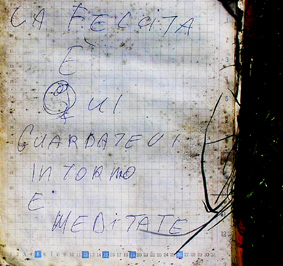 LA FECCITA
È
QUI
GUARDATEVI
INTORNO
E
MEDITATE